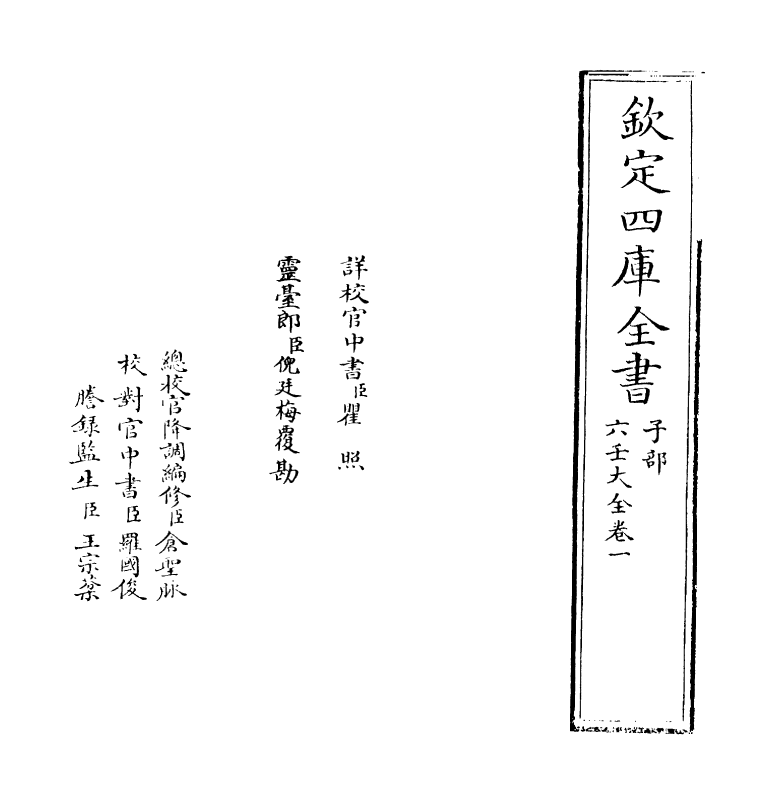 欽定四庫全書
子部
六壬大全卷一
詳校官中書臣瞿照
靈臺郎臣倪廷梅覆勘
總校官降調編修臣倉聖脉
校對官中書臣羅國俊
謄録監生臣王宗蘂